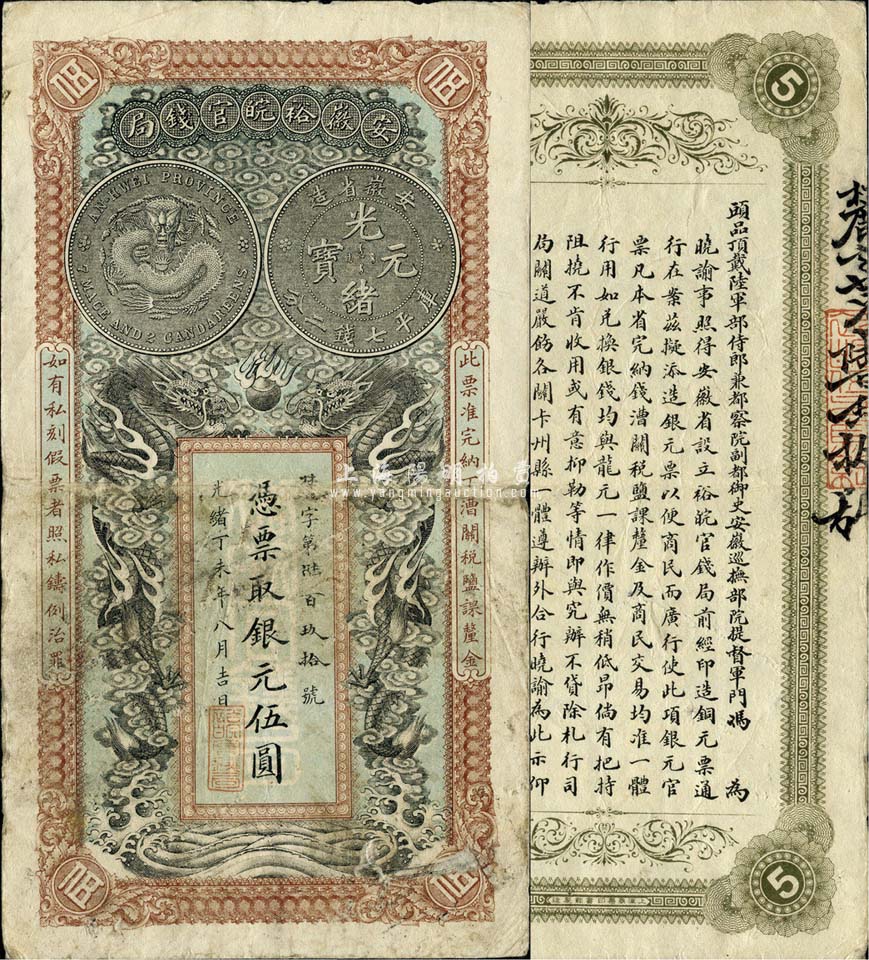 安徽裕皖官錢局
伍
伍
AN-HWEI PROVINCE
7 MACE AND 2 CANDAREENS
安徽省造
光緒元寶
庫平七錢二分
此票准完納丁漕關稅鹽課釐金
如有私刻假票者照私鑄例治罪
字第陸百玖拾號
憑票取銀元伍圓
光緒丁未年八月吉日
伍
伍
上海陽明拍賣
www.yangmingauction.com
5
頭品頂戴陸軍部侍郎兼都察院副都御史安徽巡撫部院提督軍門馮 為
曉諭事照得安徽省設立裕皖官錢局前經印造銅元票通
行在案茲擬添造銀元票以便商民而廣行使此項銀元官
票凡本省完納錢漕關稅鹽課釐金及商民交易均准一體
行用如兌換銀錢均與龍元一律作價無稍低昂倘有把持
阻撓不肯收用或有意抑勒等情即與究辦不貸除札行司
局關道嚴飭各關卡州縣一體遵辦外合行曉諭為此示仰
5